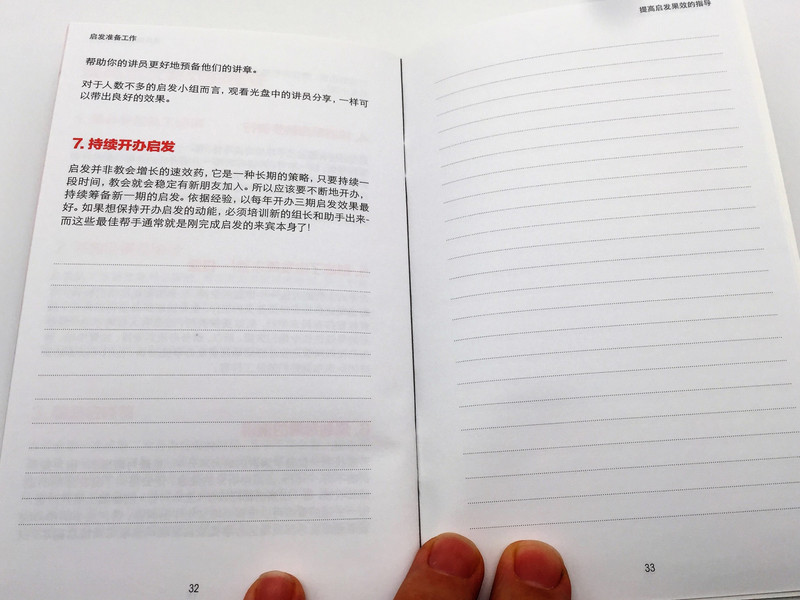 启发准备工作
帮助你的讲员更好地预备他们的讲章。
对于人数不多的启发小组而言，观看光盘中的讲员分享，一样可
以带出良好的效果。
7. 持续开办启发
启发并非教会增长的速效药，它是一种长期的策略，只要持续一
段时间，教会就会稳定有新朋友加入。所以应该要不断地开办，
持续筹备新一期的启发。依据经验，以每年开办三期启发效果最
好。如果想保持开办启发的动能，必须培训新的组长和助手出来-
而这些最佳帮手通常就是刚完成启发的来宾本身了！
32
提高启发果效的指导
33